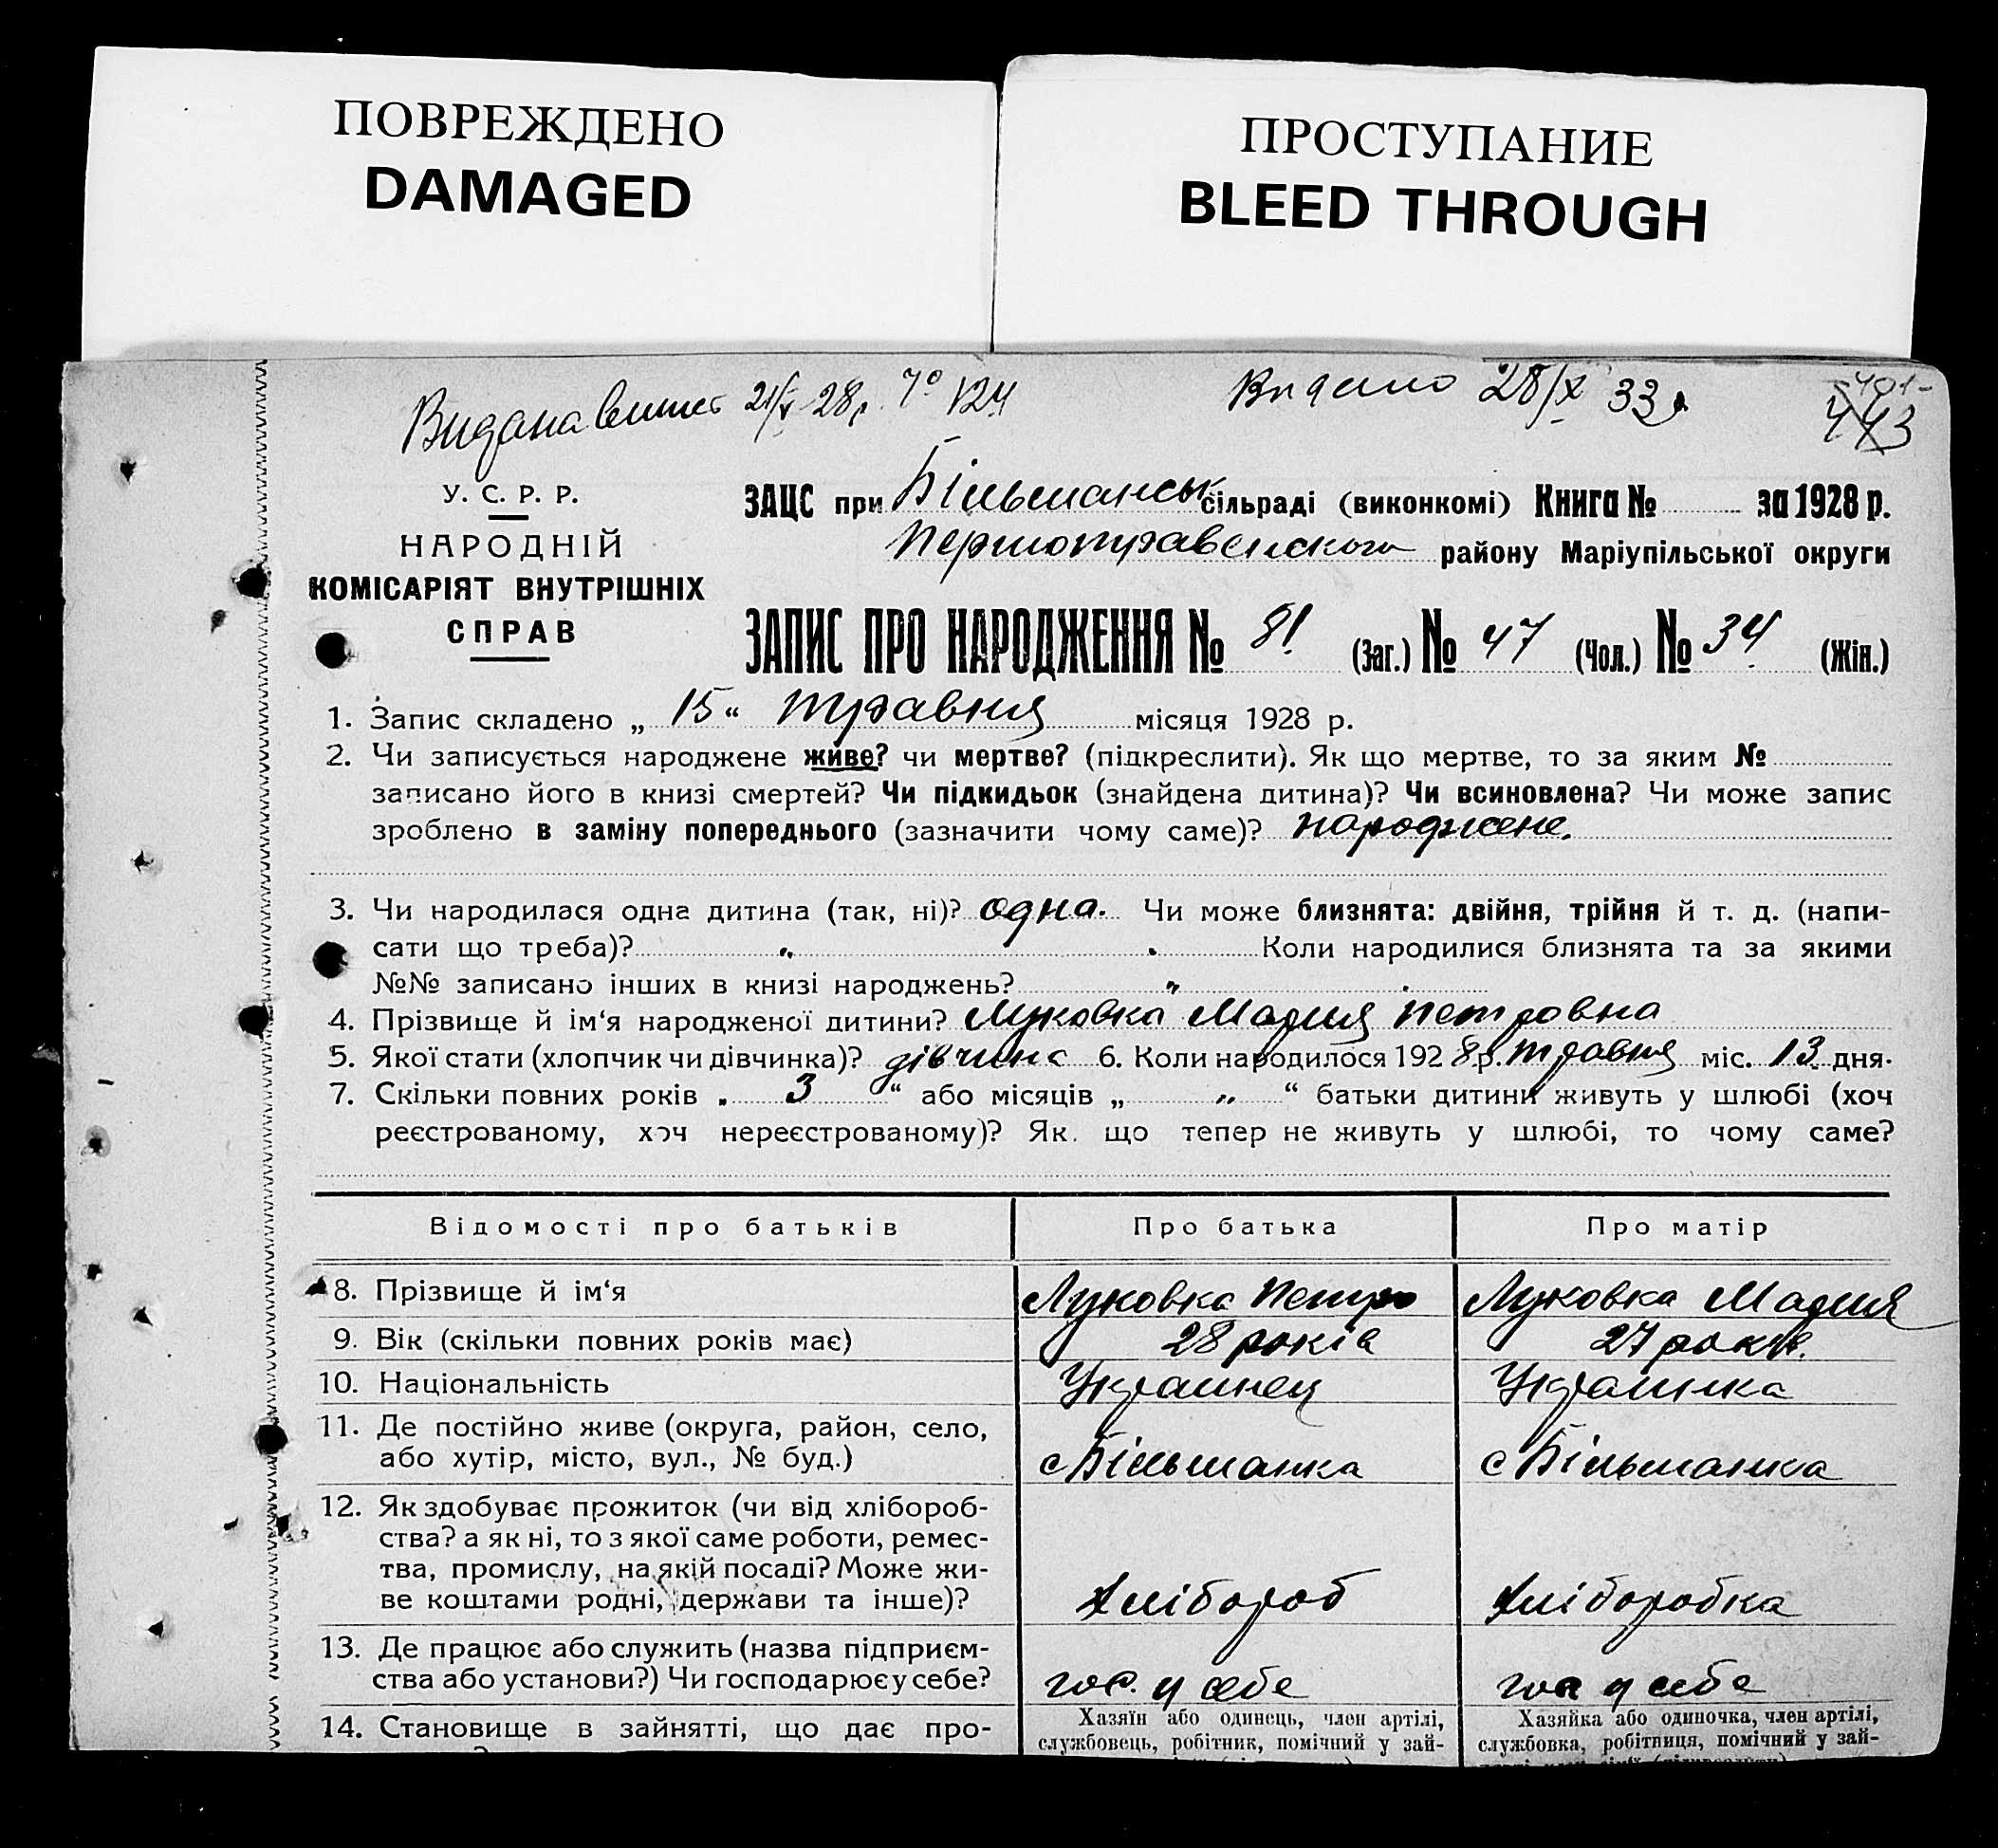 ПОВРЕЖДЕНО
DAMAGED
ПРОСТУПАНИЕ
BLEED THROUGH
Видана 21/V 28р. № 124
Видано 28/X 33р
401
443
У. С. Р. Р.
НАРОДНІЙ
КОМІСАРІЯТ ВНУТРІШНІХ
СПРАВ
ЗАЦС при Більманськ сільраді (виконкомі) Книга № за 1928 р.
району Маріупільської округи
ЗАПИС ПРО НАРОДЖЕННЯ № 81 (Заг.) № 47 (Чол.) № 34 (Жін.)
1. Запис складено „ 15 “ травня місяця 1928 р.
2. Чи записується народжене живе? чи мертве? (підкреслити). Як що мертве, то за яким №
записано його в книзі смертей? Чи підкидьок (знайдена дитина)? Чи всиновлена? Чи може запис
зроблено в заміну попереднього (зазначити чому саме)? народжене.
3. Чи народилася одна дитина (так, ні)? одна. Чи може близнята: двійня, трійня й т. д. (напи-
сати що треба)? „ Коли народилися близнята та за якими
№№ записано інших в книзі народжень? „
4. Прізвище й ім‘я народженої дитини? Луковка Мария Петровна
5. Якої стати (хлопчик чи дівчинка)? дівчина 6. Коли народилося 1928 р. травня міс. 13 дня.
7. Скільки повних років „ 3 “ або місяців „ „ “ батьки дитини живуть у шлюбі (хоч
реєстрованому, хоч нереєстрованому)? Як що тепер не живуть у шлюбі, то чому саме?
Відомості про батьків Про батька Про матір
8. Прізвище й ім‘я Луковка Петро Луковка Мария
9. Вік (скільки повних років має) 28 років 27 років.
10. Національність Украинец Украинка
11. Де постійно живе (округа, район, село,
або хутір, місто, вул., № буд.) с Більманка с Більманка
12. Як здобуває прожиток (чи від хлібороб-
ства? а як ні, то з якої саме роботи, ремес-
тва, промислу, на якій посаді? Може жи-
ве коштами родні, держави та інше)? Хлібороб Хліборобка
13. Де працює або служить (назва підприєм-
ства або установи?) Чи господарює у себе? гос. у себе гос у себе
14. Становище в зайнятті, що дає про-
Хазяїн або одинець, член артілі,
службовець, робітник, помічний у зай-
Хазяйка або одиночка, член артілі,
службовка, робітниця, помічний у зай-